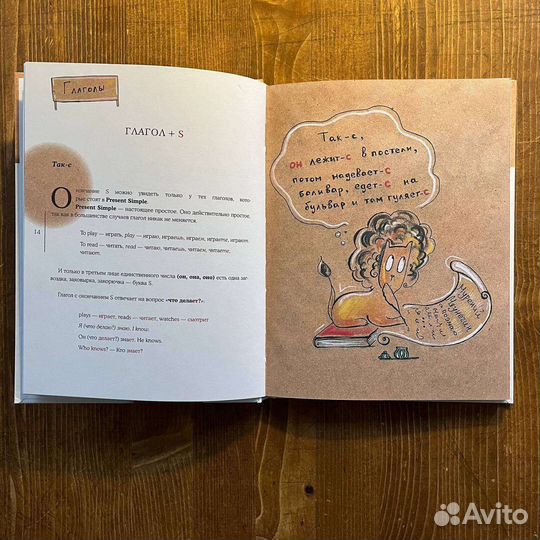 Глаголы
ГЛАГОЛ + S
Так-с
Окончание S можно увидеть только у тех глаголов, кото-
рые стоят в Present Simple.
Present Simple — настоящее простое. Оно действительно простое,
так как в большинстве случаев глагол никак не меняется.
14
To play — играть, play — играю, играешь, играем, играете, играют.
To read — читать, read — читаю, читаешь, читаем, читаете,
читают.
И только в третьем лице единственного числа (он, она, оно) есть одна за-
гвоздка, заковырка, закорючка — буква S.
Глагол с окончанием S отвечает на вопрос «что делает?»:
plays — играет, reads — читает, watches — смотрит
Я (что делаю?) знаю. I know.
Он (что делает?) знает. He knows.
Who knows? — Кто знает?
Так-с,
он лежит-с в постели,
потом надевает-с
боливар, едет-с на
бульвар и там гуляет-с
Avito